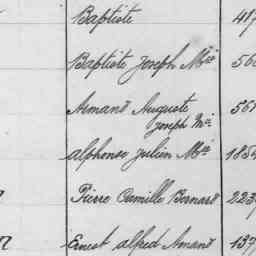 Baptiste 417
Baptiste Joseph Mie 560
Armand Auguste 561
Joseph Mie
alphonse Julien Mie 1884
Pierre Camille Bernard 223
Ernest alfred Amand 137